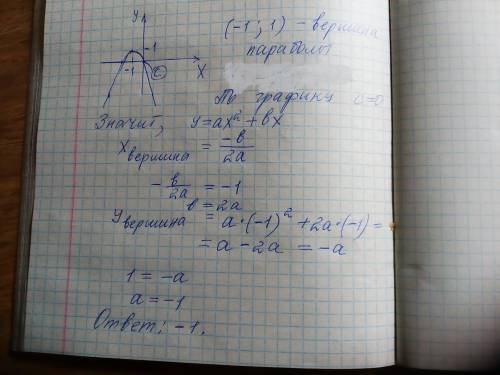 у
(-1; 1) - вершина
параболы
1
-1
с
х
По графику с=0
Значит, y=ax²+bx
x вершина = -b/2a
-b/2a = -1
b = 2a
y вершина = a·(-1)² + 2a·(-1) =
= a - 2a = -a
1 = -a
a = -1
Ответ: -1.